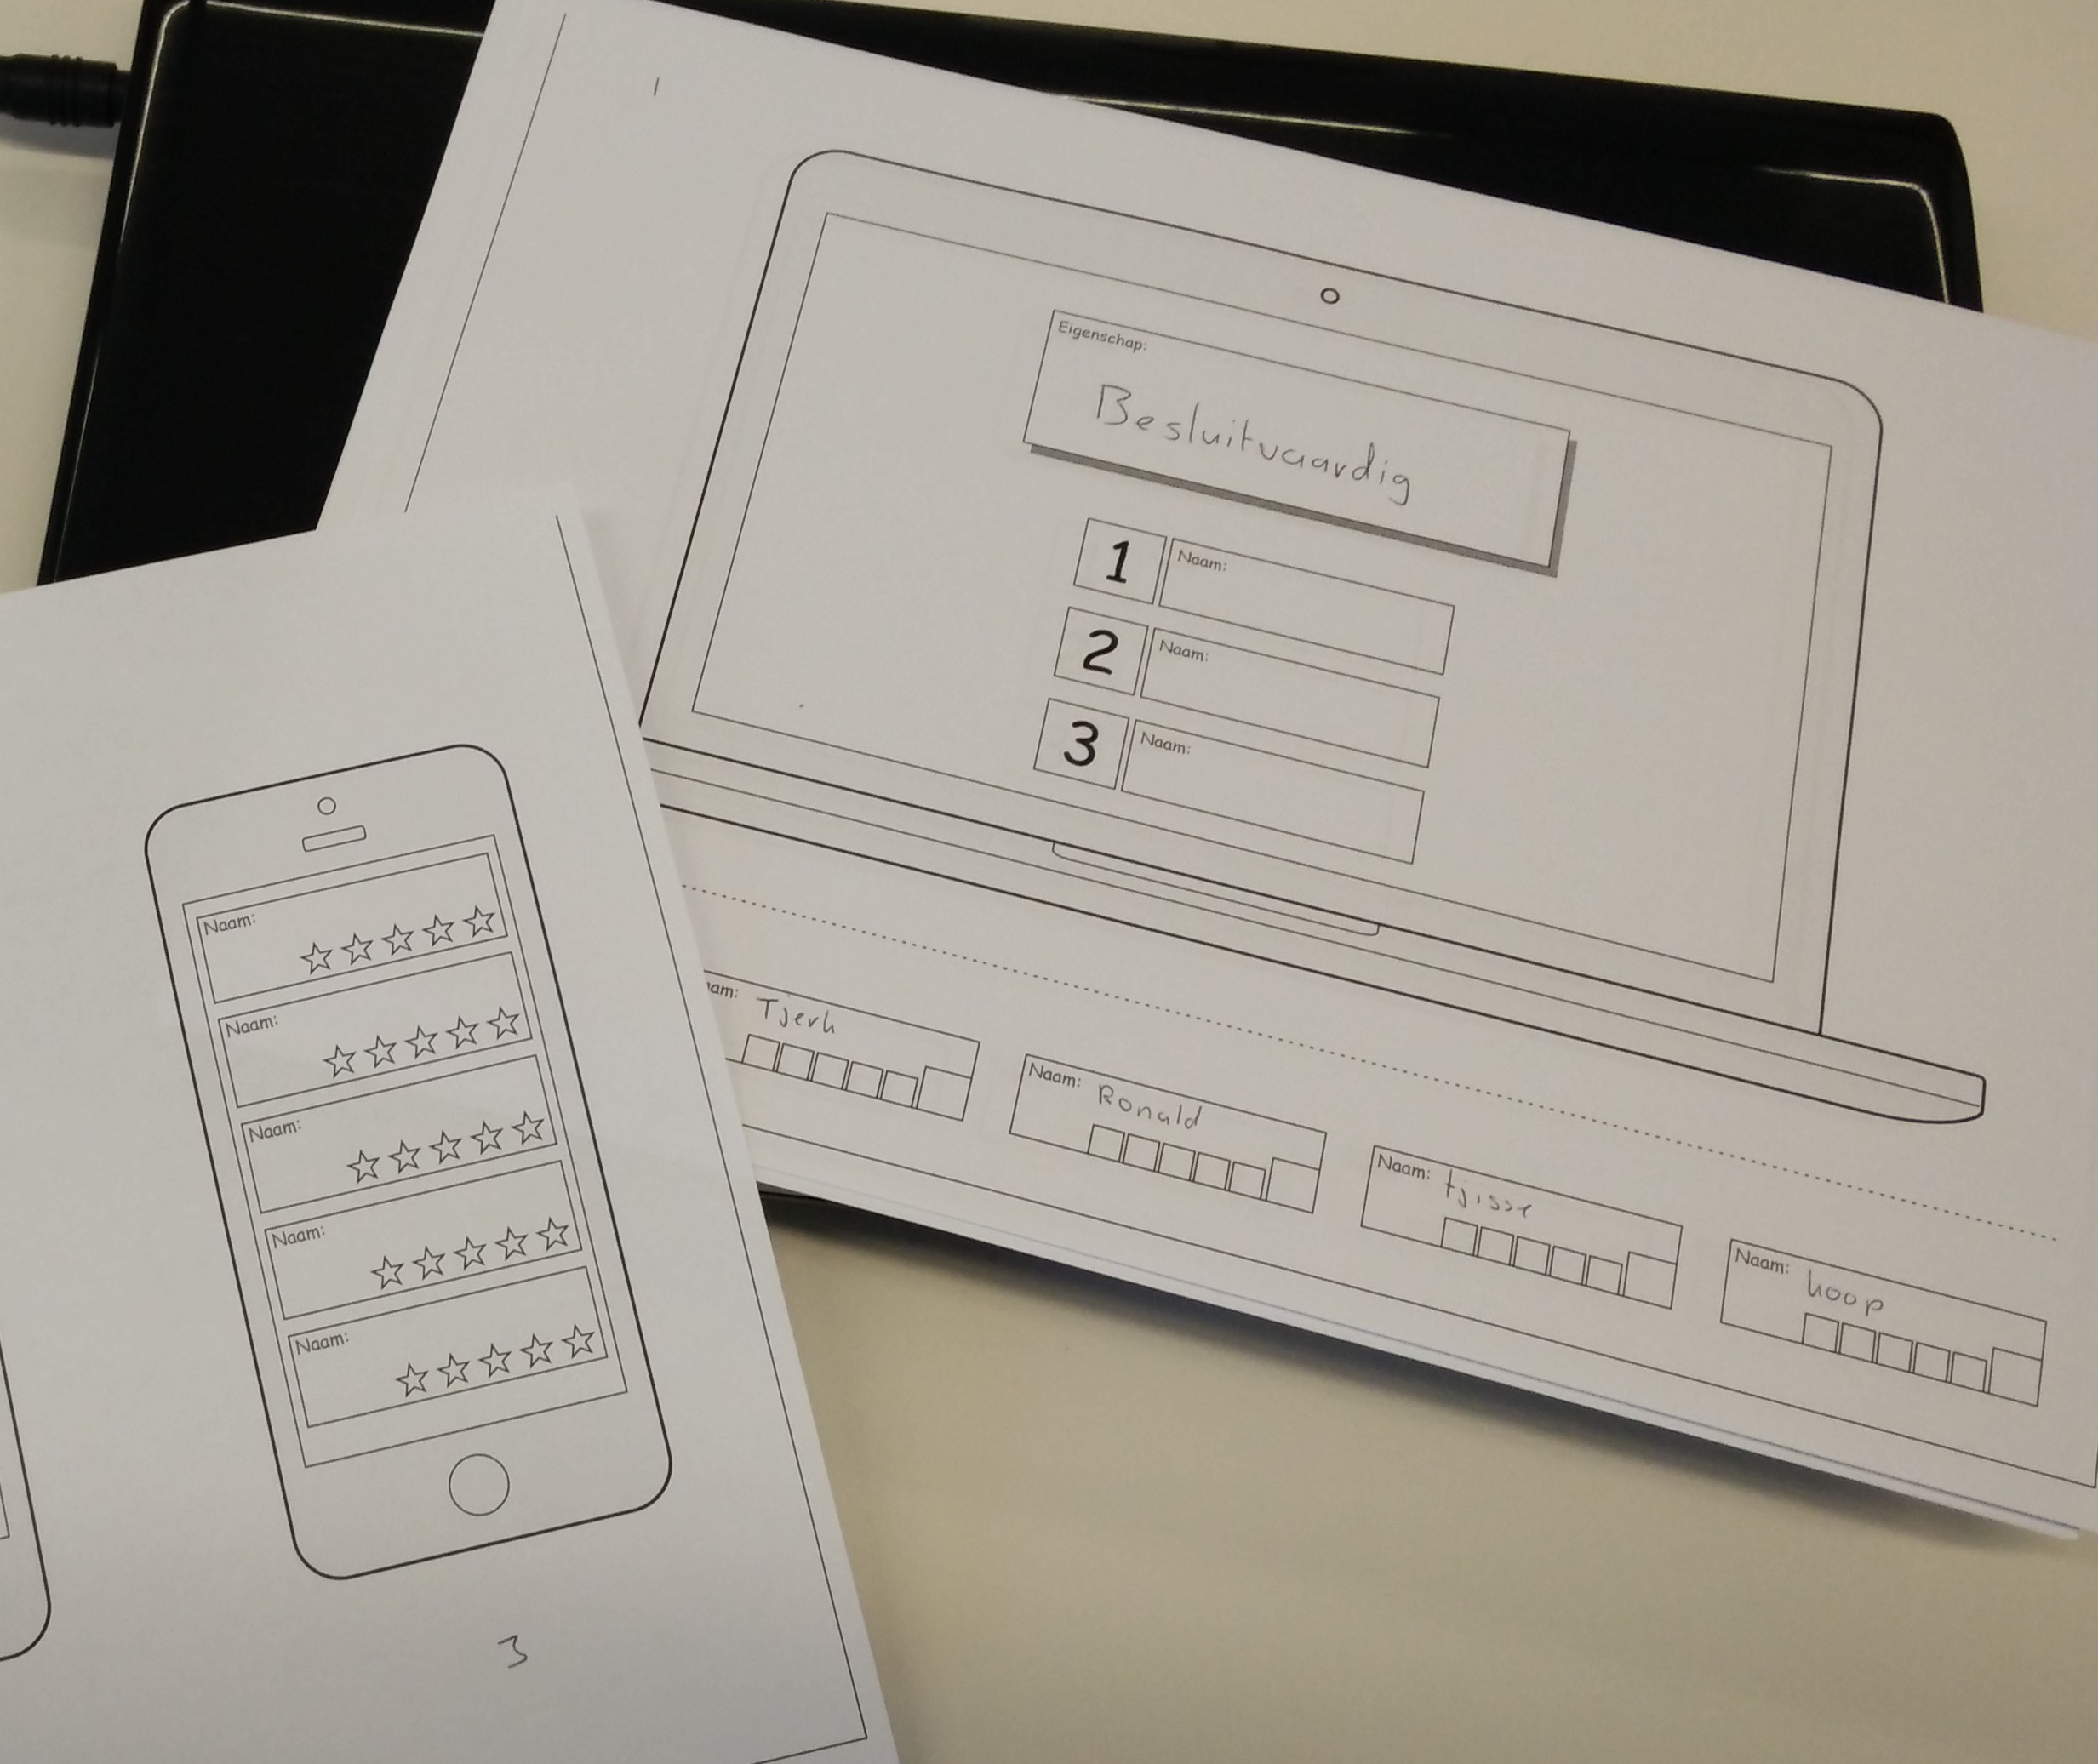 1
Eigenschap:
Besluitvaardig
1 Naam:
2 Naam:
3 Naam:
Tjerk
Naam: Ronald
Naam: tjisse
Naam: hoop
Naam:
Naam:
Naam:
Naam:
Naam:
3